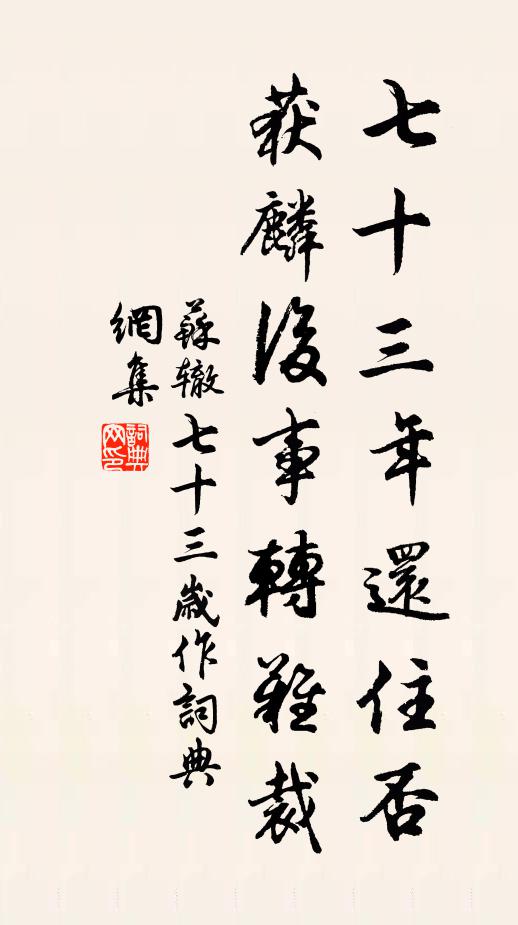 七十三年還住否
获麟後事轉難裁
蘇辙七十三歲作詞典
網集
詞典网印